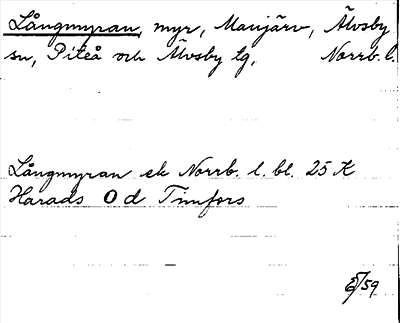 Långmyran, myr, Manjärv, Älvsby
sn, Piteå och Älvsby tg, Norrb. l.
Långmyran ek Norrb. l. bl. 25 K
Harads O d Timfors
/59